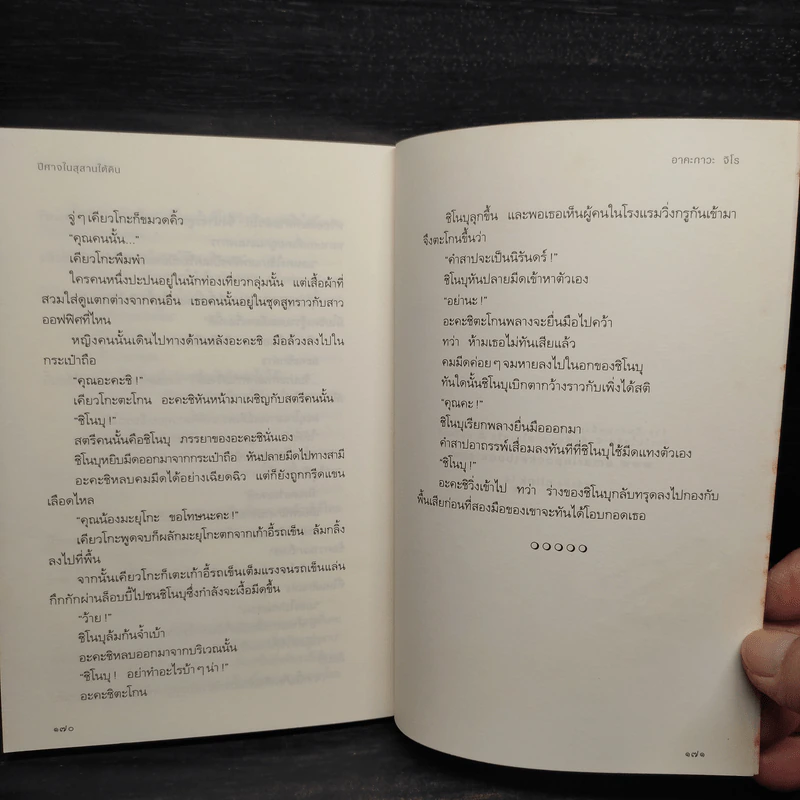 ปีศาจในสุสานใต้ดิน
จู่ๆ เคียวโกะก็ขมวดคิ้ว
"คุณคนนั้น..."
เคียวโกะพึมพำ
ใครคนหนึ่งปะปนอยู่ในนักท่องเที่ยวกลุ่มนั้น แต่เสื้อผ้าที่
สวมใส่ดูแตกต่างจากคนอื่น เธอคนนั้นอยู่ในชุดสูทราวกับสาว
ออฟฟิศที่ไหน
หญิงคนนั้นเดินไปทางด้านหลังอะคะชิ มือล้วงลงไปใน
กระเป๋าถือ
"คุณอะคะชิ !"
เคียวโกะตะโกน อะคะชิหันหน้ามาเผชิญกับสตรีคนนั้น
"ชิโนบุ !"
สตรีคนนั้นคือชิโนบุ ภรรยาของอะคะชินั่นเอง
ชิโนบุหยิบมีดออกมาจากกระเป๋าถือ หันปลายมีดไปทางสามี
อะคะชิหลบคมมีดได้อย่างเฉียดฉิว แต่ก็ยังถูกกรีดแขน
เลือดไหล
"คุณน้องมะยุโกะ ขอโทษนะคะ !"
เคียวโกะพูดจบก็ผลักมะยุโกะตกจากเก้าอี้รถเข็น ล้มกลิ้ง
ลงไปที่พื้น
จากนั้นเคียวโกะก็เตะเก้าอี้รถเข็นเต็มแรงจนรถเข็นแล่น
กึกกักผ่านล็อบบี้ไปชนชิโนบุซึ่งกำลังจะเงื้อมีดขึ้น
"ว้าย !"
ชิโนบุล้มก้นจ้ำเบ้า
อะคะชิหลบออกมาจากบริเวณนั้น
"ชิโนบุ ! อย่าทำอะไรบ้าๆ น่า !"
อะคะชิตะโกน
๑๗๐
อาคะกาวะ จิโร
ชิโนบุลุกขึ้น และพอเธอเห็นผู้คนในโรงแรมวิ่งกรูกันเข้ามา
จึงตะโกนขึ้นว่า
"คำสาปจะเป็นนิรันดร์ !"
ชิโนบุหันปลายมีดเข้าหาตัวเอง
"อย่านะ !"
อะคะชิตะโกนพลางจะยื่นมือไปคว้า
ทว่า ห้ามเธอไม่ทันเสียแล้ว
คมมีดค่อยๆ จมหายลงไปในอกของชิโนบุ
ทันใดนั้นชิโนบุเบิกตากว้างราวกับเพิ่งได้สติ
"คุณคะ !"
ชิโนบุเรียกพลางยื่นมือออกมา
คำสาปอาถรรพ์เสื่อมลงทันทีที่ชิโนบุใช้มีดแทงตัวเอง
"ชิโนบุ !"
อะคะชิวิ่งเข้าไป ทว่า ร่างของชิโนบุกลับทรุดลงไปกองกับ
พื้นเสียก่อนที่สองมือของเขาจะทันได้โอบกอดเธอ
๑๗๑